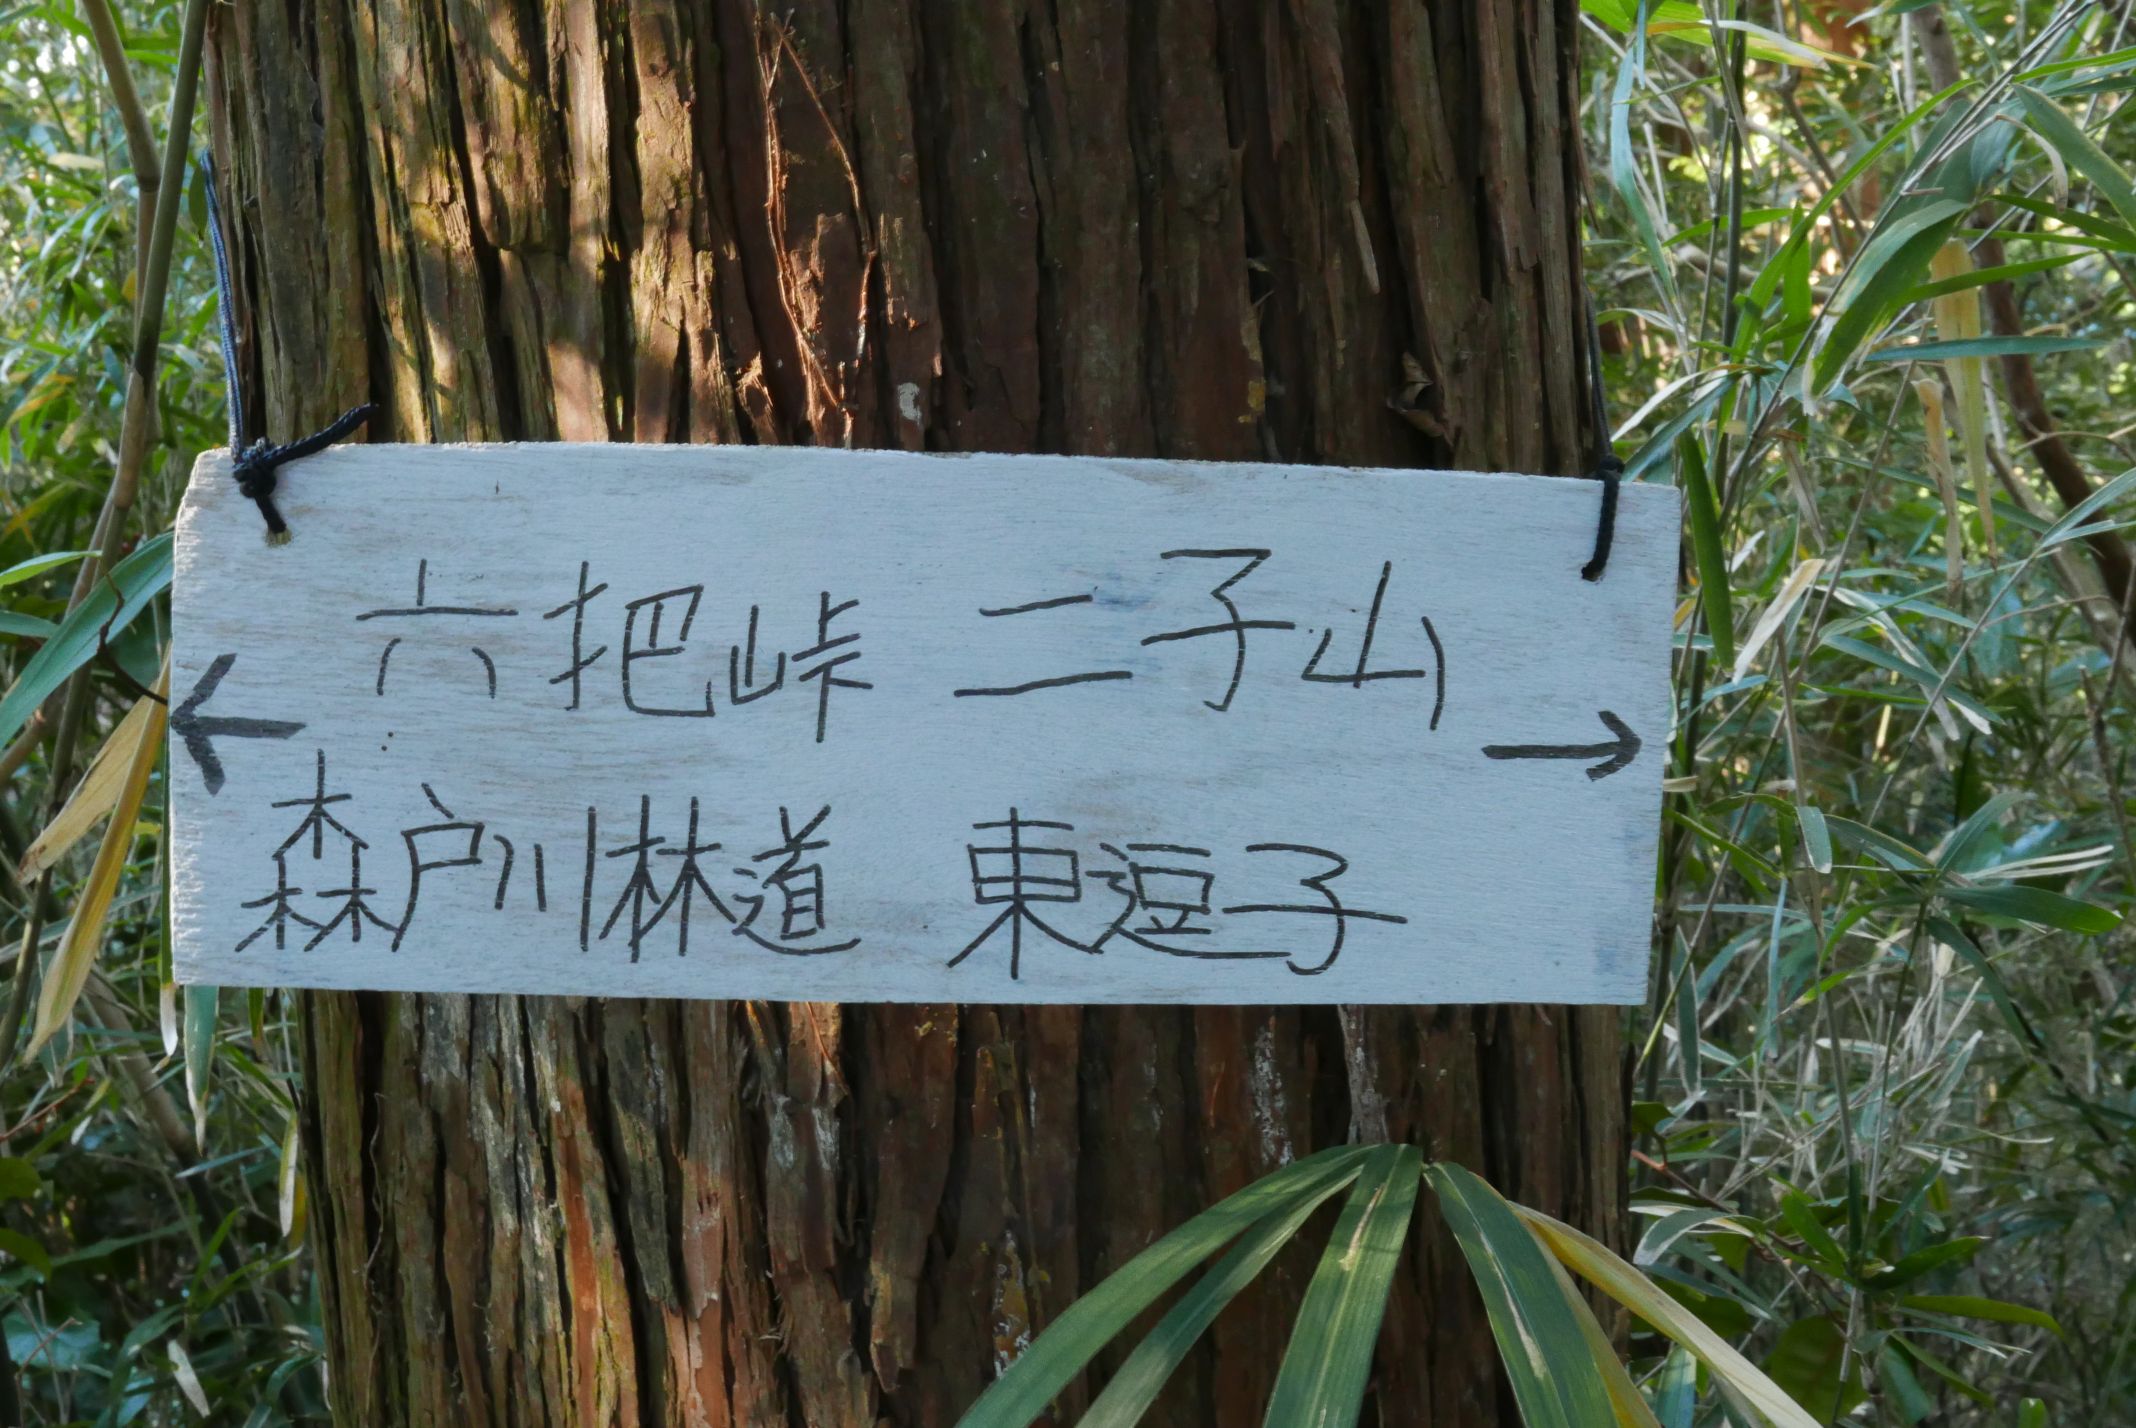 六把峠 二子山
← →
森戸川林道 東逗子